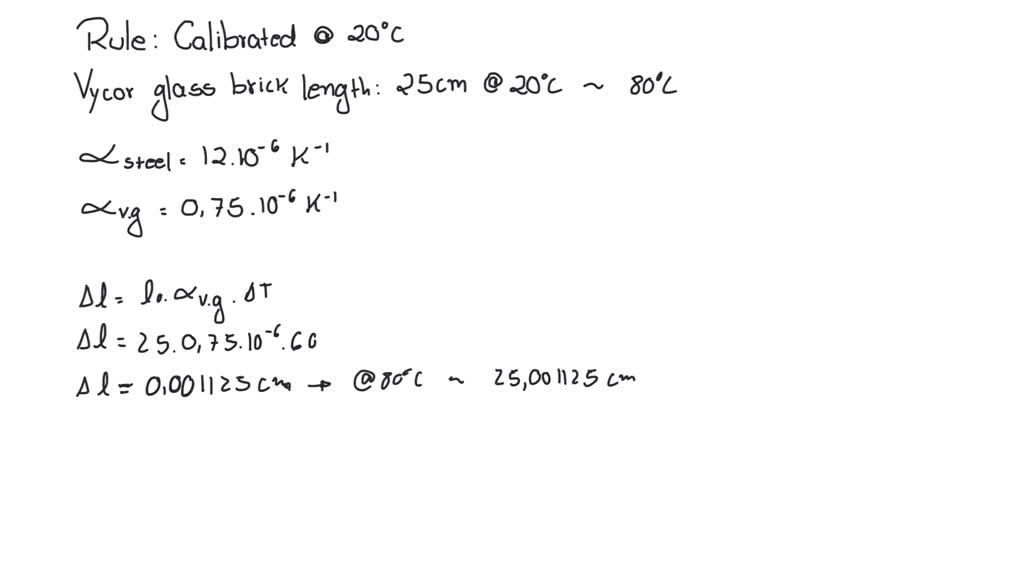 Rule: Calibrated @ 20°C
Vycor glass brick length: 25cm @ 20°C ~ 80°C
α steel = 12.10⁻⁶ K⁻¹
α v.g = 0,75.10⁻⁶ K⁻¹
Δl = l₀.α v.g.ΔT
Δl = 25.0,75.10⁻⁶.60
Δl = 0,001125cm → @80°C ~ 25,001125 cm